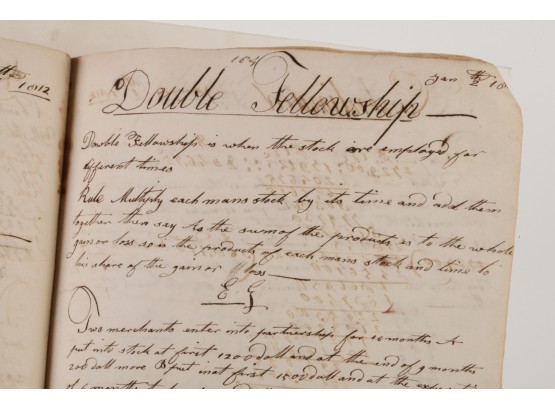 1812
164
Jan 18
Double Fellowship
Double Fellowship is when the stock are employed for
different times
Rule Multiply each mans stock by its time and add them
together then say As the sum of the products is to the whole
gain or loss so is the products of each mans stock and time to
his share of the gain or loss
E G
Two merchants enter into partnership for months A
put into stock at first 1200 doll and at the end of 9 months
200 doll more B put in at first 1500 doll and at the
of 6 months